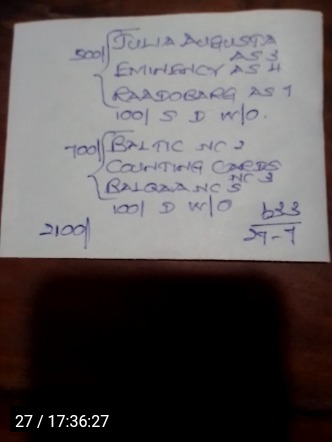 500/ JULIA AUGUSTA
AS 3
EMINENCY AS 4
RAADOBARG AS 1
100/ S D W/O.
700/ BALTIC NC 2
COUNTING CARDS
NC 3
BALQAA NC 5
100/ D W/O
2100/
b33
27-7
27 / 17:36:27